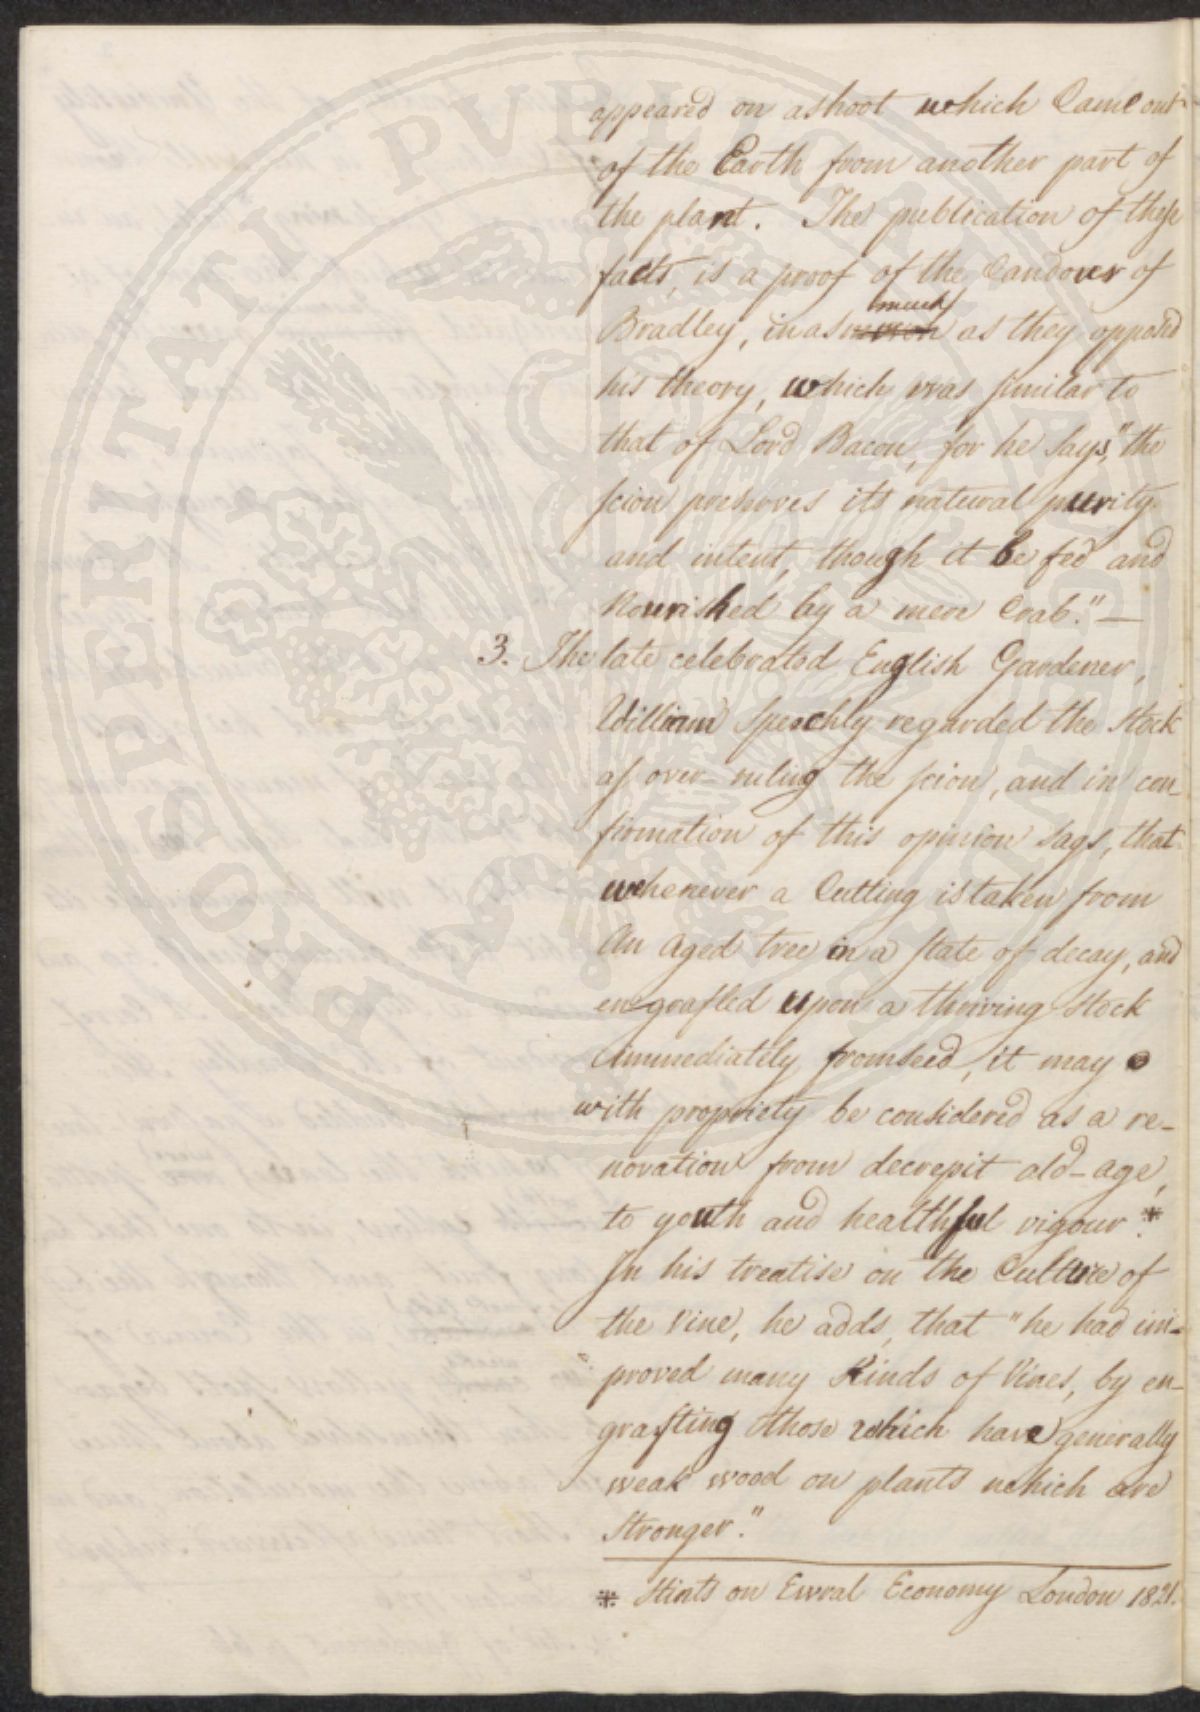 PROSPERITATI PVBLICAE
appeared on a shoot which Came out
of the Earth from another part of
the plant. The publication of these
facts, is a proof of the Candour of
much
Bradley, in as as they opposed
his theory, which was similar to
that of Lord Bacon, for he says, "the
scion preserves its natural purity
and intent, though it be fed and
Nourished by a mere Crab." —
3. The late celebrated English Gardener,
William Speechly regarded the Stock
as over-ruling the scion, and in con-
firmation of this opinion says, that
whenever a Cutting is taken from
An Aged tree in a state of decay, and
engrafted upon a thriving Stock
immediately from seed, it may
with propriety be considered as a re-
novation from decrepit old-age,
to youth and healthful vigour.*
In his treatise on the Culture of
the Vine, he adds, that "he had im-
proved many Kinds of Vines, by en-
grafting those which have generally
weak wood on plants which are
Stronger."
* Hints on Erural Economy London 1821.